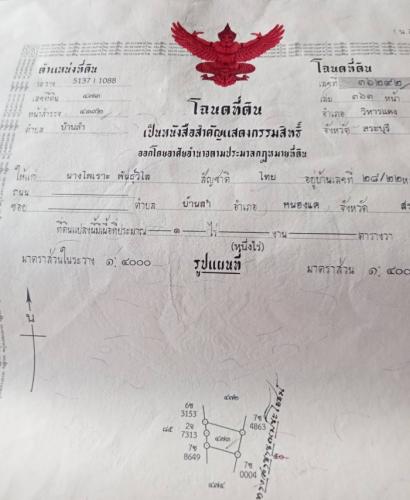 ตำแหน่งที่ดิน
ระวาง 5137 I 1088
เลขที่ดิน ๔๗๓
หน้าสำรวจ
ตำบล บ้านลำ
โฉนดที่ดิน
เลขที่ ๓๖๒๙๒
เล่ม ๓๖๓ หน้า
อำเภอ วิหารแดง
จังหวัด สระบุรี
โฉนดที่ดิน
เป็นหนังสือสำคัญแสดงกรรมสิทธิ์
ออกโดยอาศัยอำนาจตามประมวลกฎหมายที่ดิน
ให้แก่ นางไพเราะ สัญชาติ ไทย อยู่บ้านเลขที่ ๒๘/๒๒
ถนน
ซอย ตำบล บ้านลำ อำเภอ หนองแค จังหวัด
ที่ดินแปลงนี้มีเนื้อที่ประมาณ ๑ ไร่ งาน ตารางวา
(หนึ่งไร่)
มาตราส่วนในระวาง ๑: ๔๐๐๐ รูปแผนที่ มาตราส่วน ๑: ๔๐๐
น
๔๗๒
6ซ
3153
2จ
7313
7ซ
8649
7ซ
4863
7ซ
0004
๔๗๓
๘๕
๔๗๔